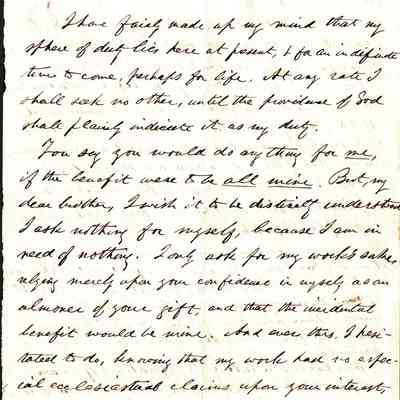 I have fairly made up my mind that my
sphere of duty lies here at present, & for an indefinite
time to come, perhaps for life. At any rate I
shall seek no other, until the providence of God
shall plainly indicate it as my duty.
You say you would do anything for me,
if the benefit were to be all mine. But, my
dear brother, I wish it to be distinctly understood
I ask nothing for myself, because I am in
need of nothing. I only ask for my work's sake,
relying merely upon your confidence in myself as an
almoner of your gift, and that the incidental
benefit would be mine. And even this, I hesi-
tated to do, knowing that my work had no espec-
ial ecclesiastical claims upon your interest,